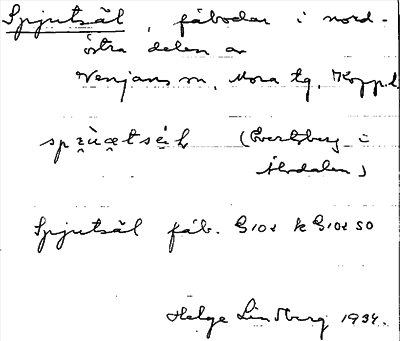 Spjutsäl, fäbodar i nord-
östra delen av
Venjans sn, Mora tg, Kopp.l.
(Evertsberg i
Älvdalen)
Spjutsäl fäb. G102 k G102 SO
Helge Lindberg 1934.